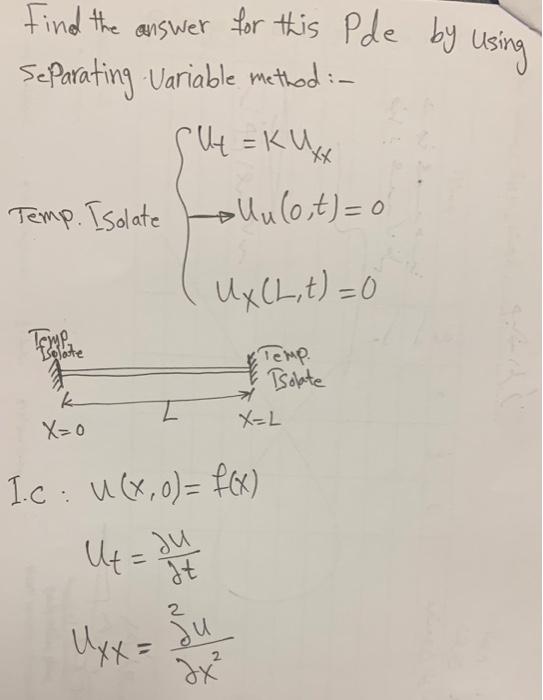 Find the answer for this Pde by using
Separating Variable method :-
Ut = K Uxx
Temp. Isolate → Uu(0,t) = 0
Ux(L,t) = 0
Temp. Isolate
Temp. Isolate
L
X=0
X=L
I.C : u(x,0) = f(x)
Ut = ∂u/∂t
Uxx = ∂²u/∂x²